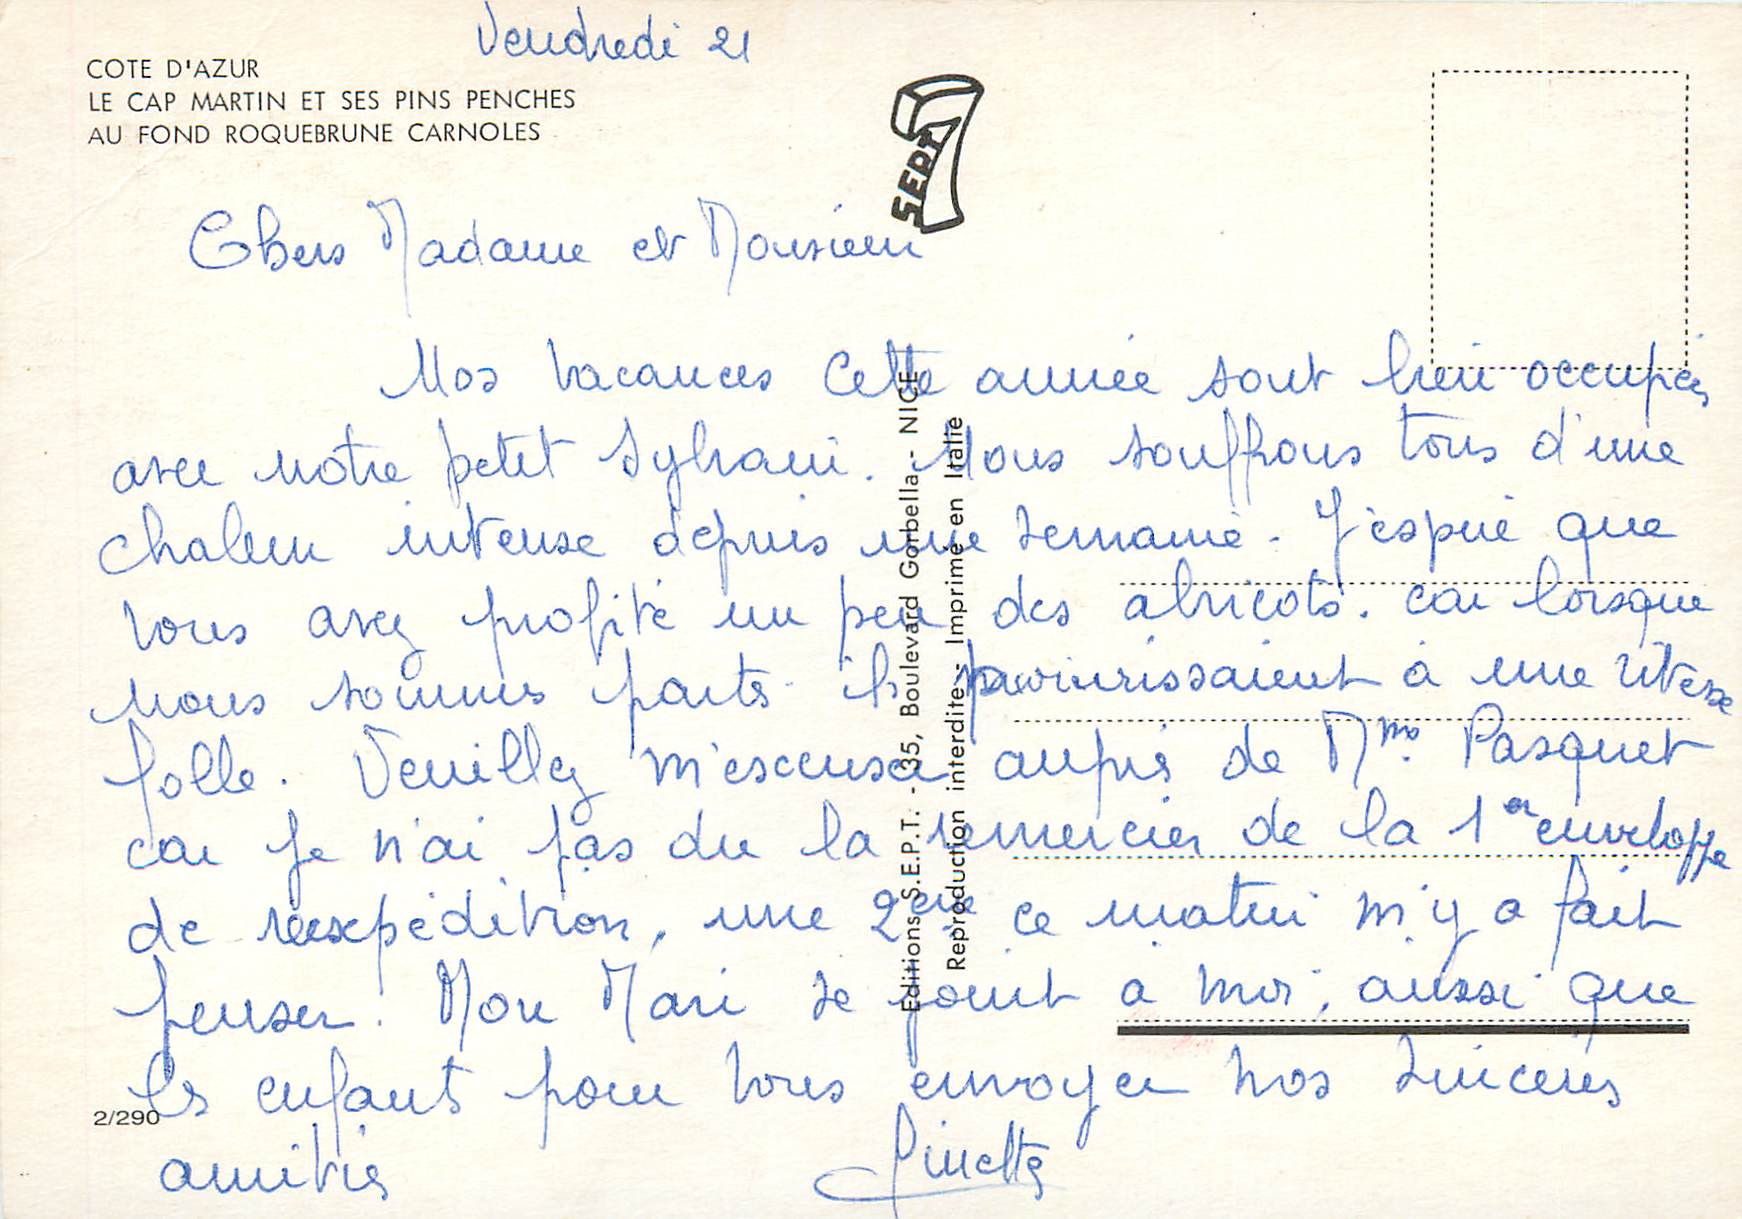 Vendredi 21
COTE D'AZUR
LE CAP MARTIN ET SES PINS PENCHES
AU FOND ROQUEBRUNE CARNOLES
SEPT
7
Chers Madame et Monsieur
Nos vacances cette année sont bien occupées
avec notre petit Sylvain. Nous souffrons tous d'une
chaleur intense depuis une semaine. J'espère que
vous avez profité un peu des abricots. car lorsque
nous sommes partis ils pourrissaient à une vitesse
folle. Veuillez m'excuser auprès de Mme. Pasquet
car je n'ai pas du la remercier de la 1er enveloppe
de réexpédition, une 2ème ce matin m'y a fait
penser. Mon Mari se joint a moi, aussi que
les enfants pour vous envoyer nos sincères
amitiés
Ginette
2/290
Editions S.E.P.T. - 35, Boulevard Gorbella - NICE
Reproduction interdite - Imprimé en Italie